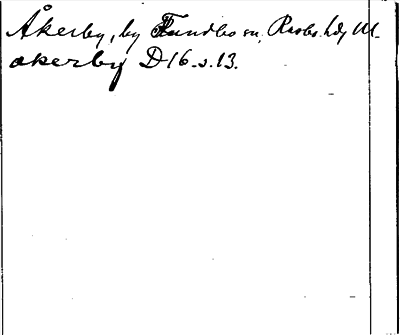 Åkerby, by Fundbo sn, Rasbo hd, Ul.
akerby D16 s. 13.